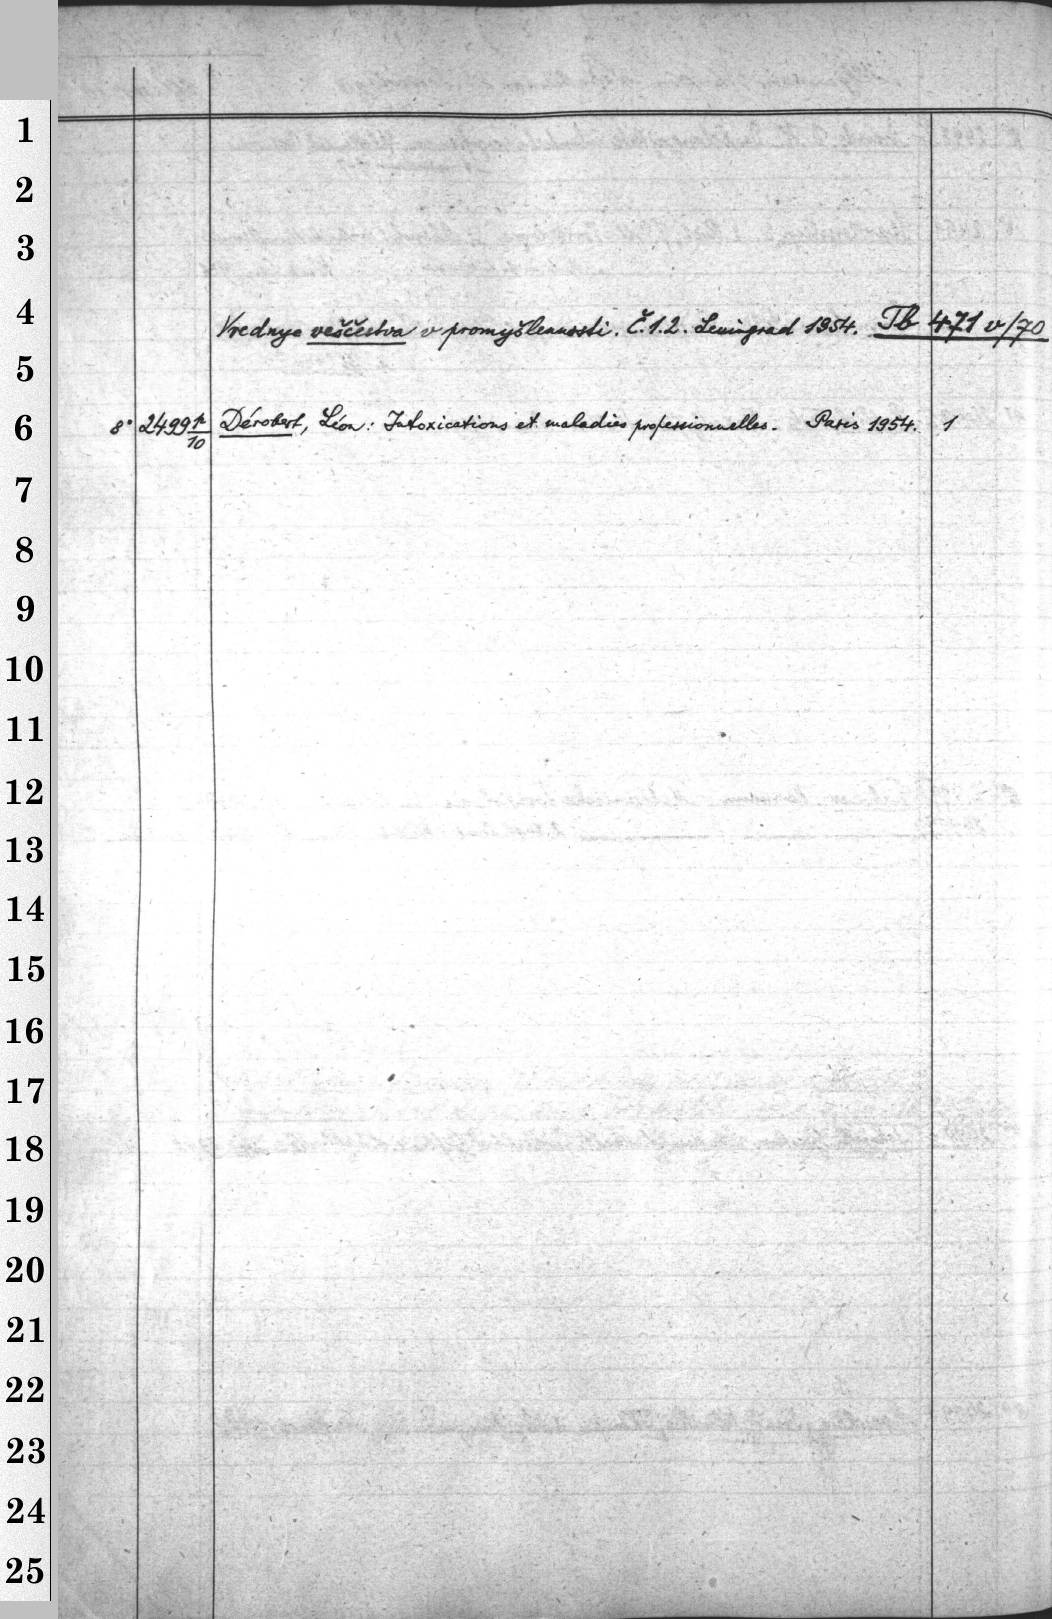 1
2
3
4
Vrednye veščestva v promyšlennosti. Č.1.2. Leningrad 1954. Tb 471 v/70
5
6
8° 2499 p/10 Dérobert, Léon: Intoxications et maladies professionnelles. Paris 1954. 1
7
8
9
10
11
12
13
14
15
16
17
18
19
20
21
22
23
24
25